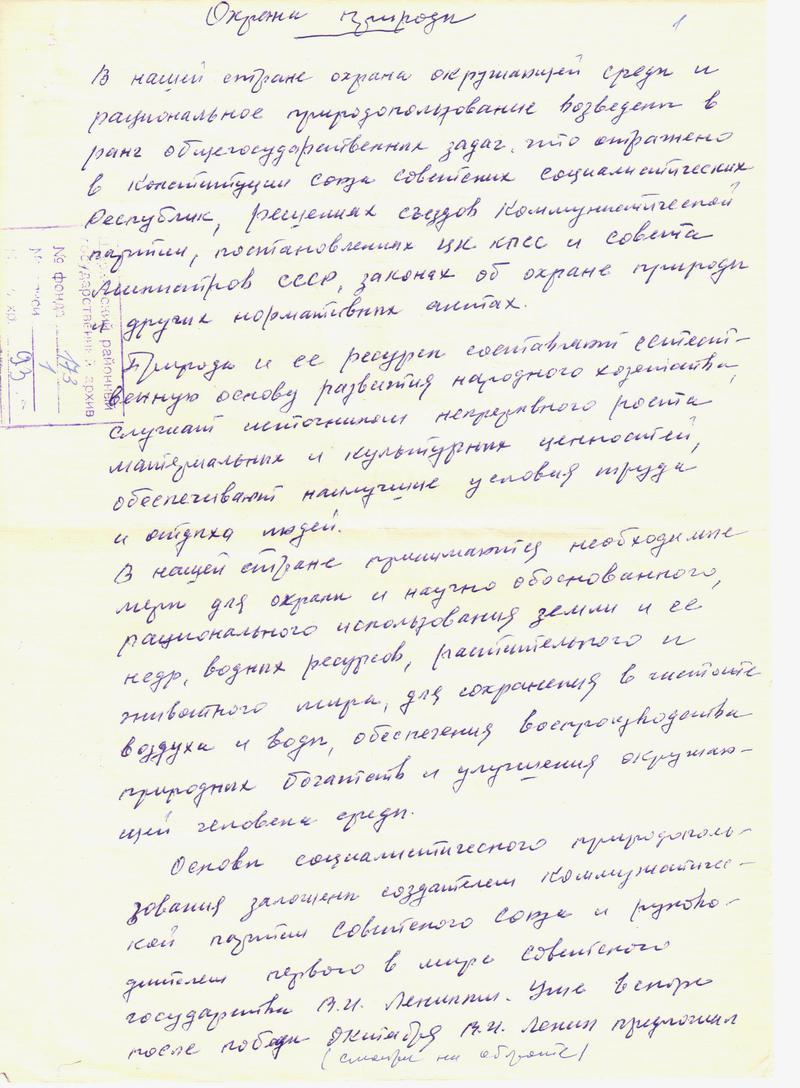 Охрана природы
1
В нашей стране охрана окружающей среды и
рациональное природопользование возведены в
ранг общегосударственных задач, что отражено
в Конституции Союза Советских Социалистических
Республик, решениях съездов Коммунистической
партии, постановлениях ЦК КПСС и Совета
Министров СССР, законах об охране природы
и других нормативных актах.
Природа и ее ресурсы составляют естест-
венную основу развития народного хозяйства,
служат источником непрерывного роста
материальных и культурных ценностей,
обеспечивают наилучшие условия труда
и отдыха людей.
В нашей стране принимаются необходимые
меры для охраны и научно обоснованного,
рационального использования земли и ее
недр, водных ресурсов, растительного и
животного мира, для сохранения в чистоте
воздуха и воды, обеспечения воспроизводства
природных богатств и улучшения окружаю-
щей человека среды.
Основы социалистического природополь-
зования заложены создателем Коммунистичес-
кой партии Советского Союза и руково-
дителем первого в мире Советского
государства В.И. Лениным. Уже вскоре
после победы Октября В.И. Ленин предложил
(смотри на обороте)
районный
государственный архив
№ фонда 173
№ описи 1
93